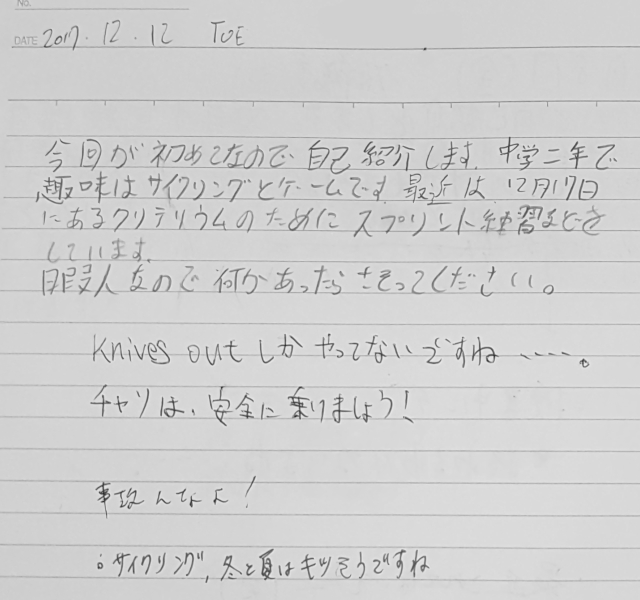 No.
DATE 2017.12.12 TUE
今回が初めてなので自己紹介します。中学二年で
趣味はサイクリングとゲームです。最近は、12月17日
にあるクリテリウムのためにスプリント練習などを
しています。
暇人なので何かあったらさそってください。
Knives outしかやってないですね……。
チャリは、安全に乗りましょう!
事故んなよ!
。サイクリング,冬と夏はキツそうですね